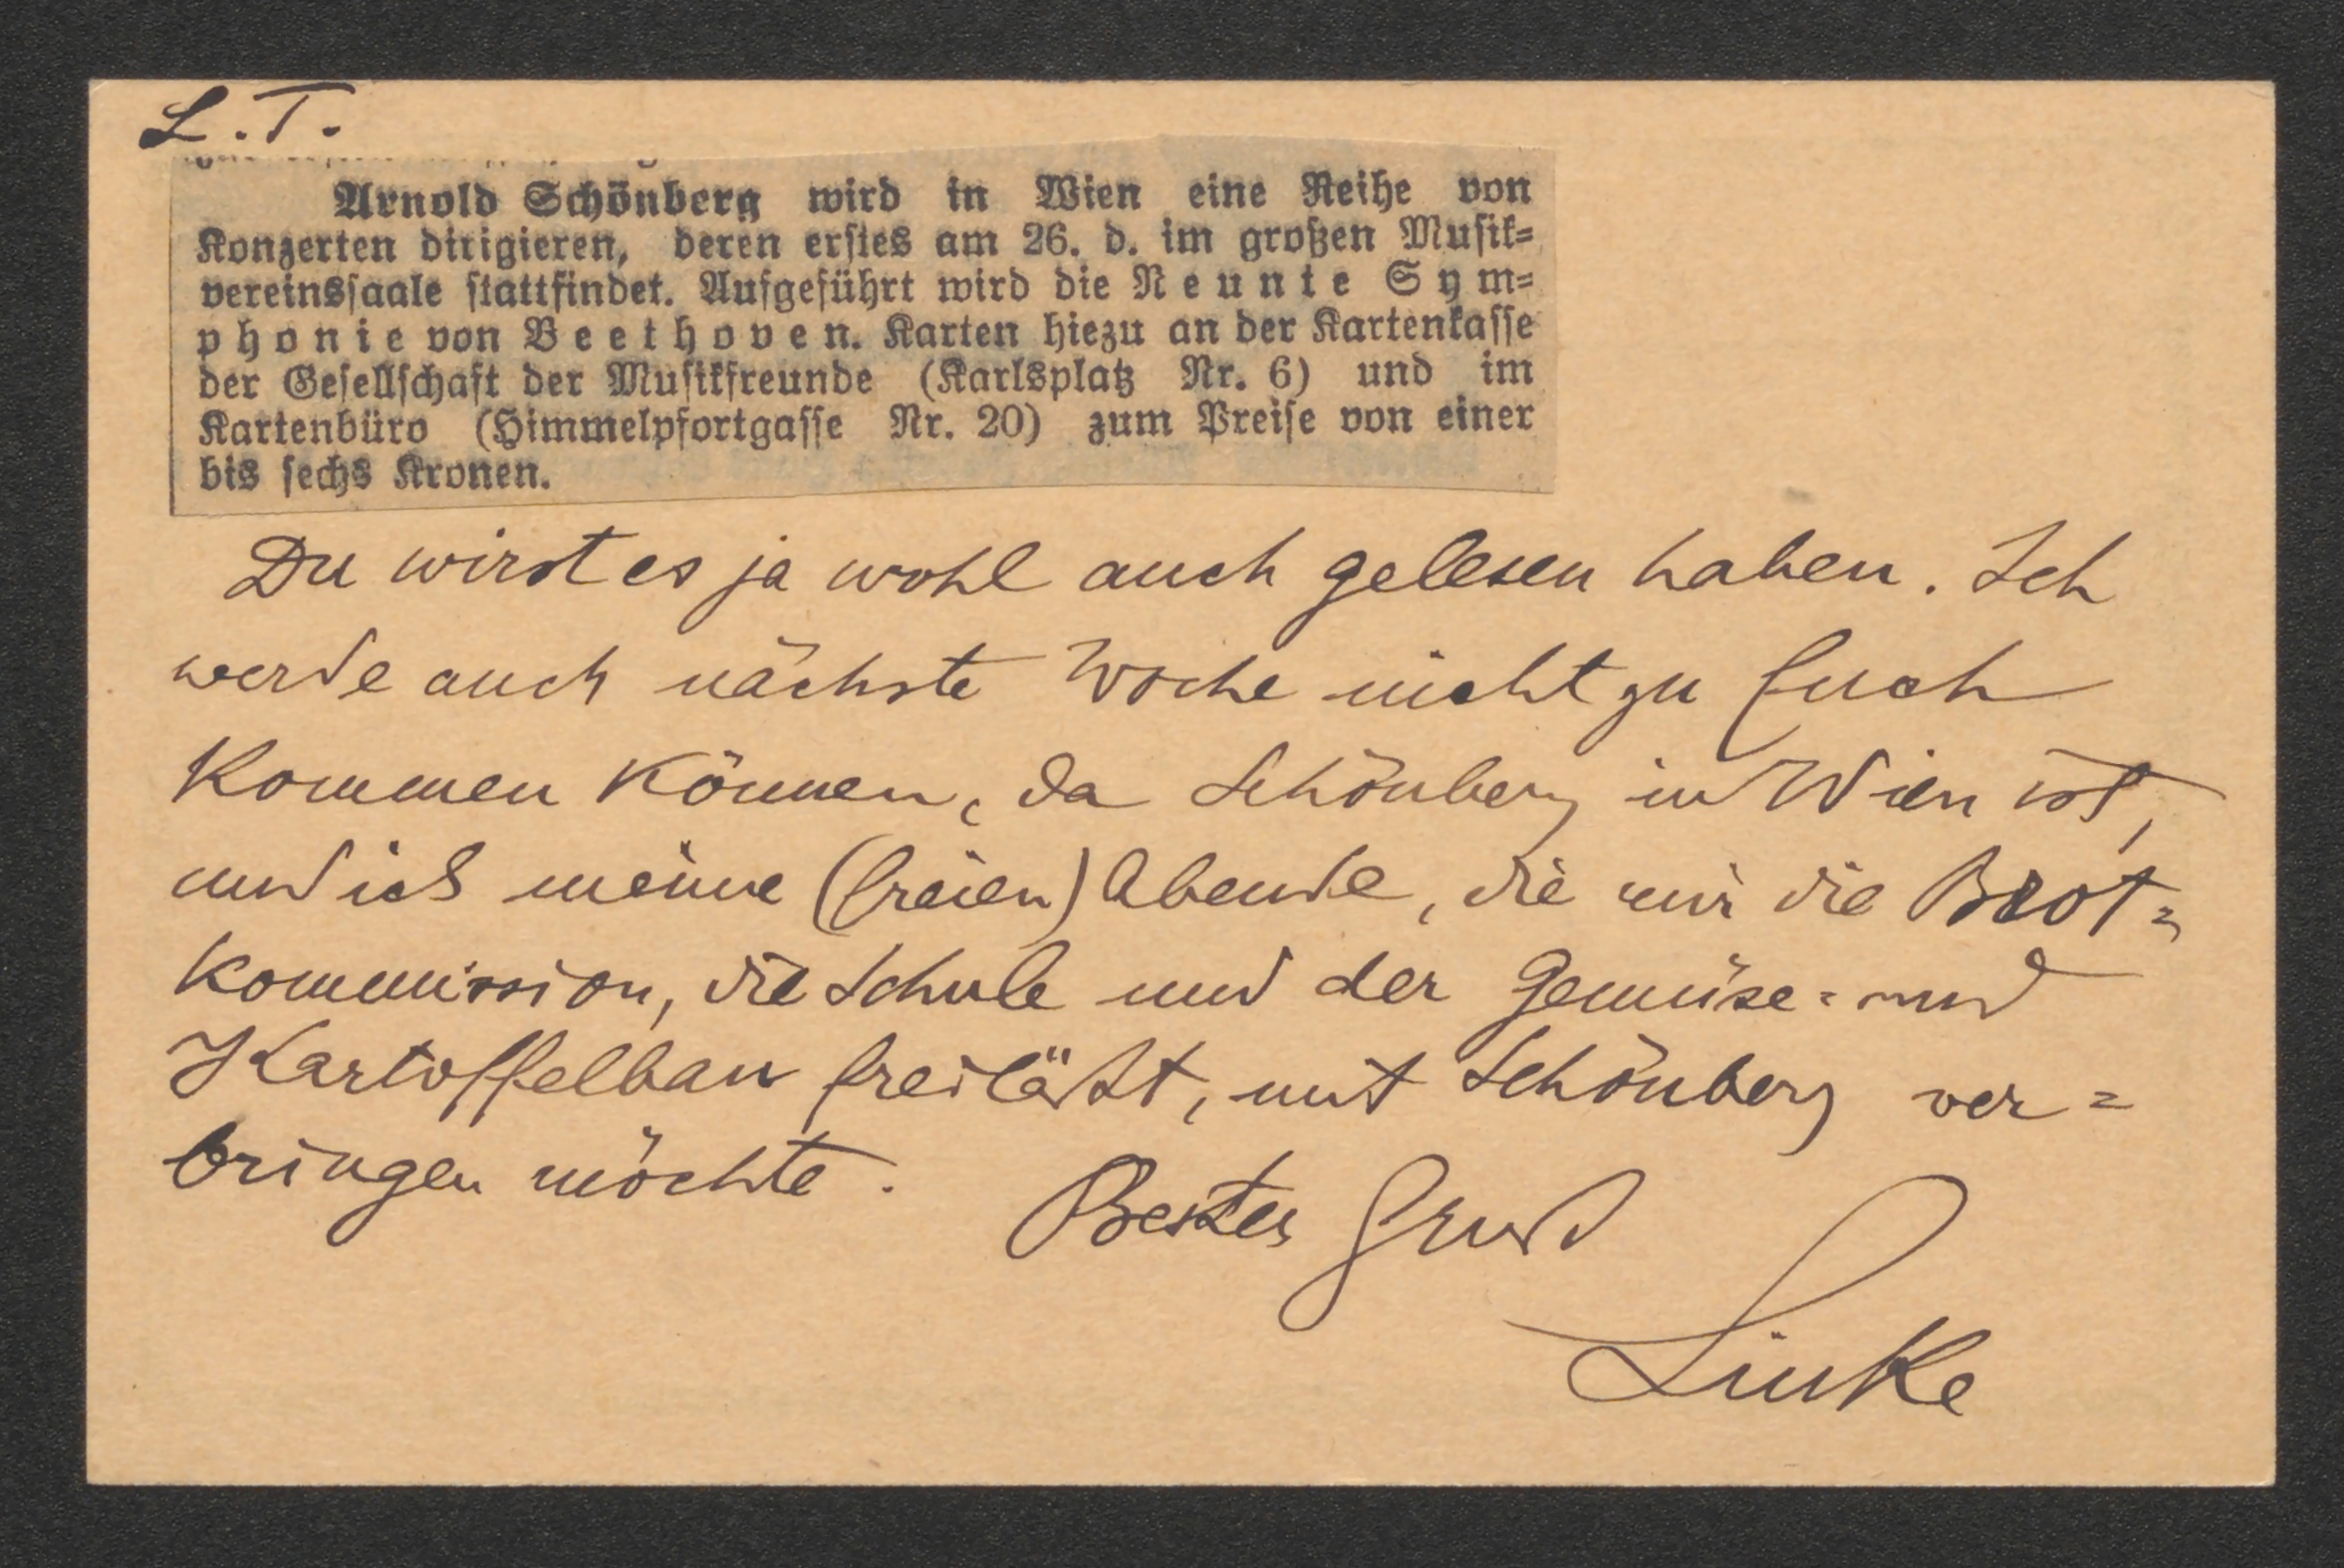 L. T.
Arnold Schönberg wird in Wien eine Reihe von
Konzerten dirigieren, deren erstes am 26. d. im großen Musik=
vereinssaale stattfindet. Aufgeführt wird die Neunte Sym=
phonie von Beethoven. Karten hiezu an der Kartenkasse
der Gesellschaft der Musikfreunde (Karlsplatz Nr. 6) und im
Kartenbüro (Himmelpfortgasse Nr. 20) zum Preise von einer
bis sechs Kronen.
Du wirst es ja wohl auch gelesen haben. Ich
werde auch nächste Woche nicht zu Euch
kommen können, da Schönberg in Wien ist,
und ich meine (freien) Abende, die mir die Brot=
kommission, die Schule und der Gemüse= und
Kartoffelbau freiläßt, mit Schönberg ver=
bringen möchte.
Besten Gruß
Linke